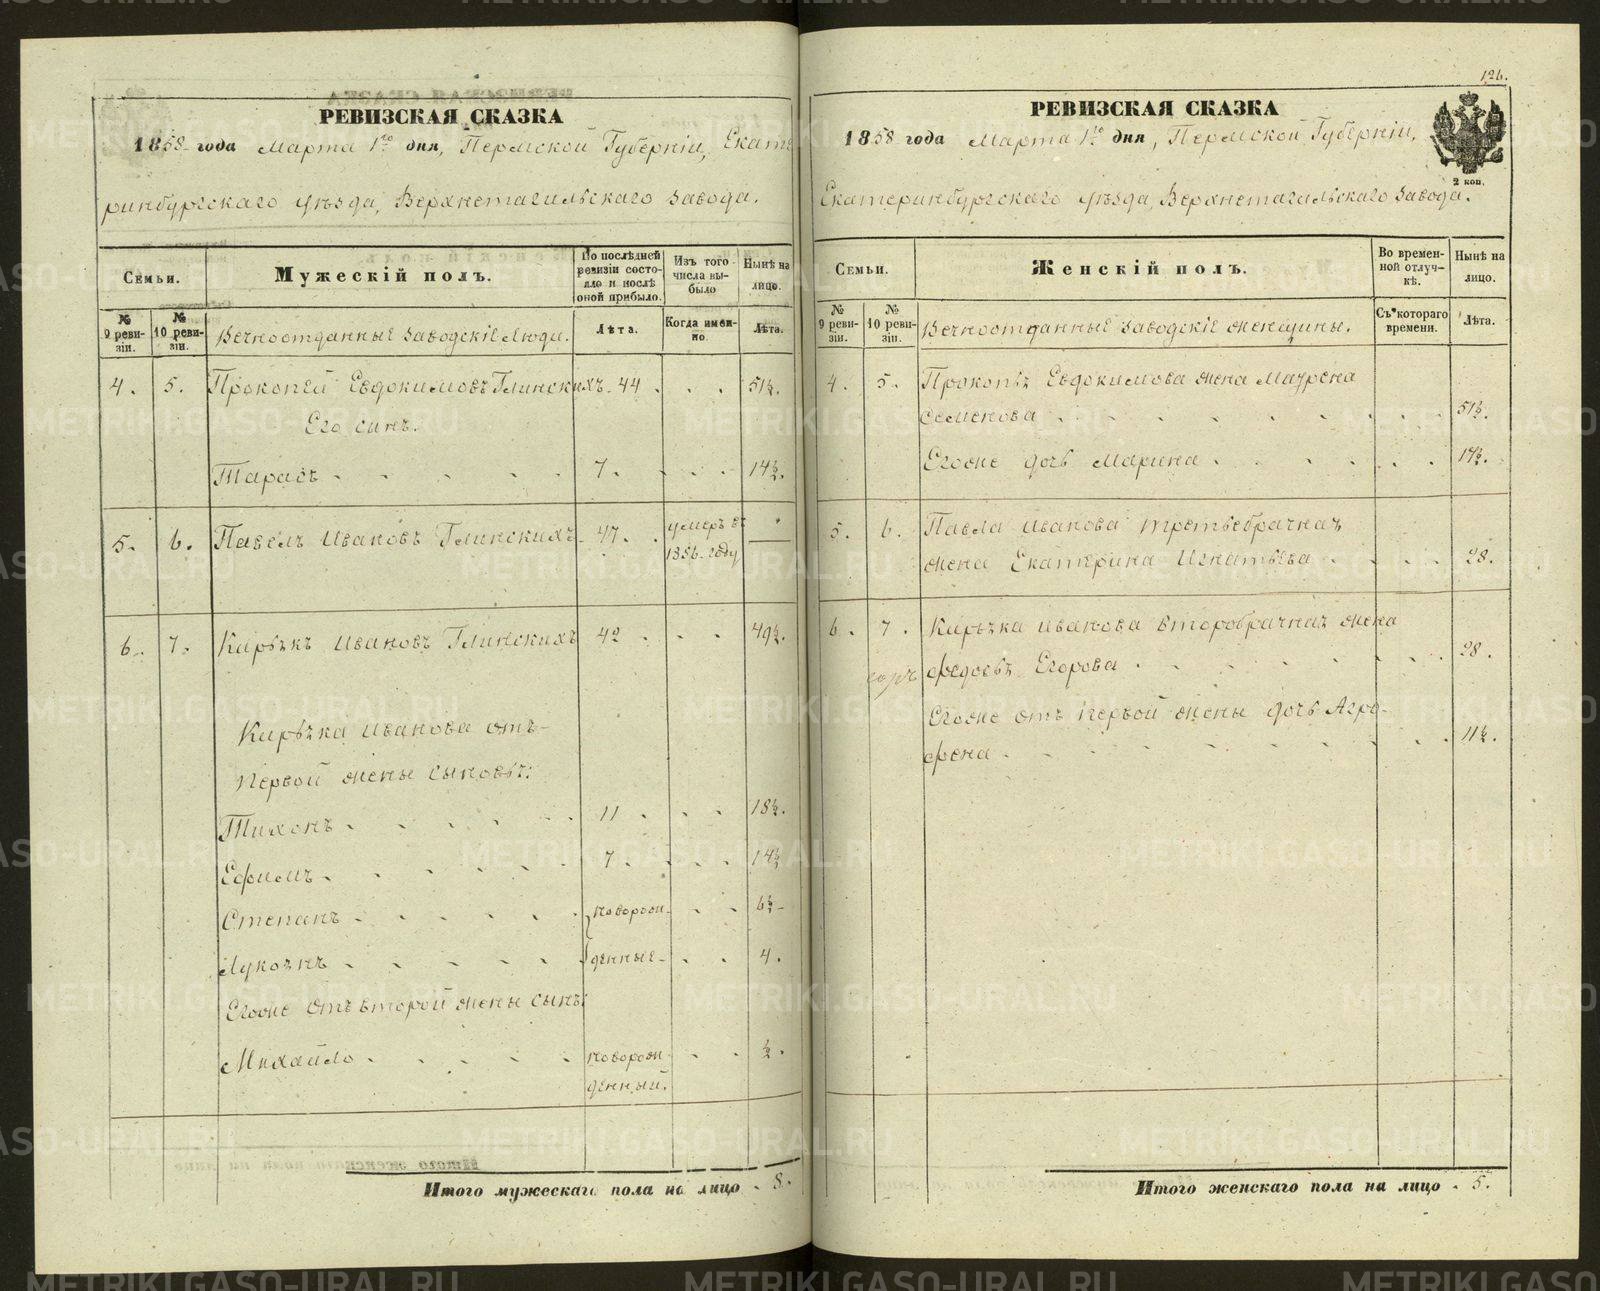 РЕВИЗСКАЯ СКАЗКА
1858 года Марта 1го дня, Пермской Губерніи, Екате
ринбургскаго уѣзда, Верхнетагильскаго завода.
Семьи.
Мужескій полъ.
По послѣдней ревизіи состояло и послѣ оной прибыло.
Изъ того числа выбыло
Нынѣ на лицо.
№ 9 ревизіи.
№ 10 ревизіи.
Вечноотданные заводскіе Люди.
Лѣта.
Когда именно.
Лѣта.
4. 5. Прокопей Евдокимовъ Глинскихъ 44 . . . 51½.
Его сынъ.
Тарасъ . . . . . 7. . . . 14½.
5. 6. Павелъ Ивановъ Глинскихъ 47. . умеръ въ "
1856. году
6. 7. Кирѣкъ Ивановъ Глинскихъ 42 . . . 49½.
Кирѣка Иванова отъ
первой жены сыновья:
Тихонъ . . . . . 11 . . . 18½.
Ефимъ . . . . . 7 . . . . 14½
Степанъ . . . . . новорож- . . 6½
Лукоянъ . . . . . денные . . 4.
Егоже отъ второй жены сынъ:
Михайло . . . . . новорож- . . ½.
денный.
Итого мужескаго пола на лицо . 8.
126.
РЕВИЗСКАЯ СКАЗКА
1858 года Марта 1го дня, Пермской Губерніи,
2 коп.
Екатеринбургскаго уѣзда, Верхнетагильскаго завода.
Семьи.
Женскій полъ.
Во временной отлучкѣ.
Нынѣ на лицо.
№ 9 ревизіи.
№ 10 ревизіи.
Вечноотданные заводскіе женщины.
Съ котораго времени.
Лѣта.
4. 5. Прокопья Евдокимова жена Маурена
Семенова . . . . . . . . 51½.
Егоже дочь Марина . . . . . . 17½.
5. 6. Павла Иванова третьебрачная
жена Екатерина Игнатьева . . . . 28.
6. 7. Кирѣка Иванова второбрачная жена
Федосья Егорова . . . . . . . 28.
Егоже отъ первой жены дочь Агро-
фена . . . . . . . . 11½.
Итого женскаго пола на лицо . 5.
METRIKI.GASO-URAL.RU